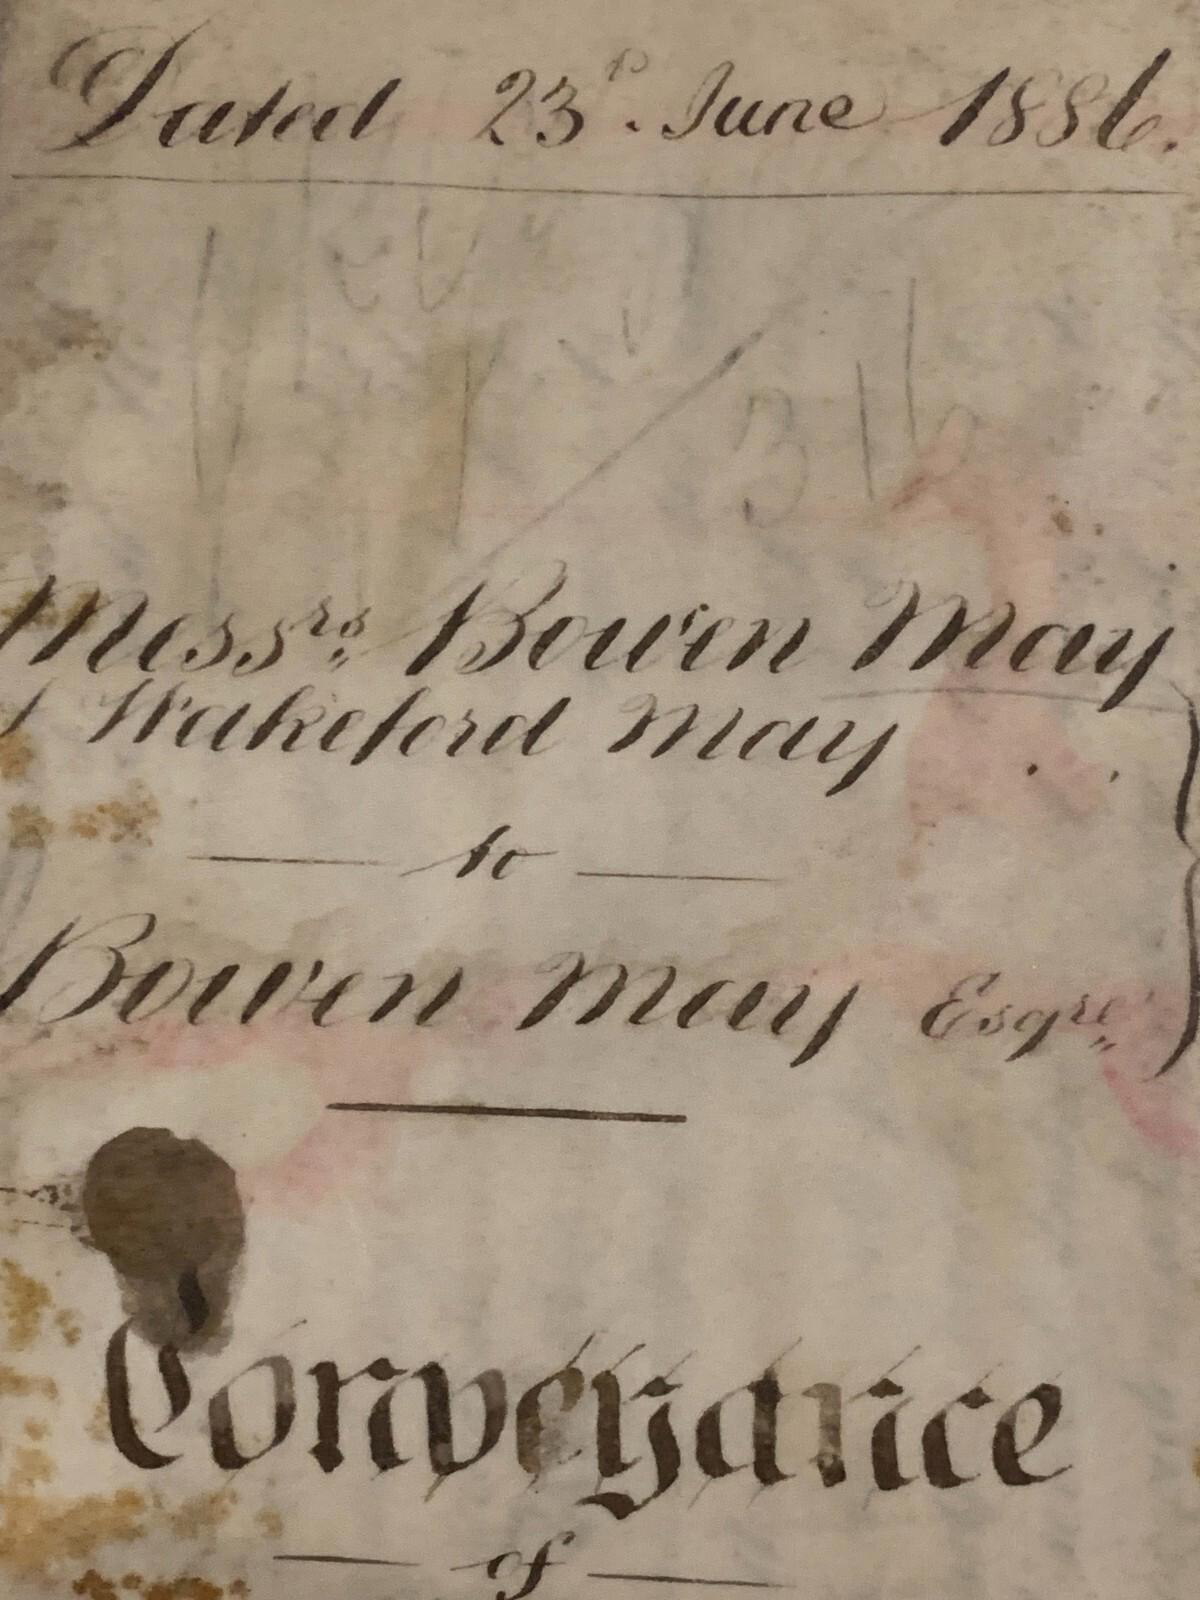 Dated 23rd. June 1886.
Messrs. Bowen May
& Wakeford May
to
Bowen May Esqre.
Conveyance
of